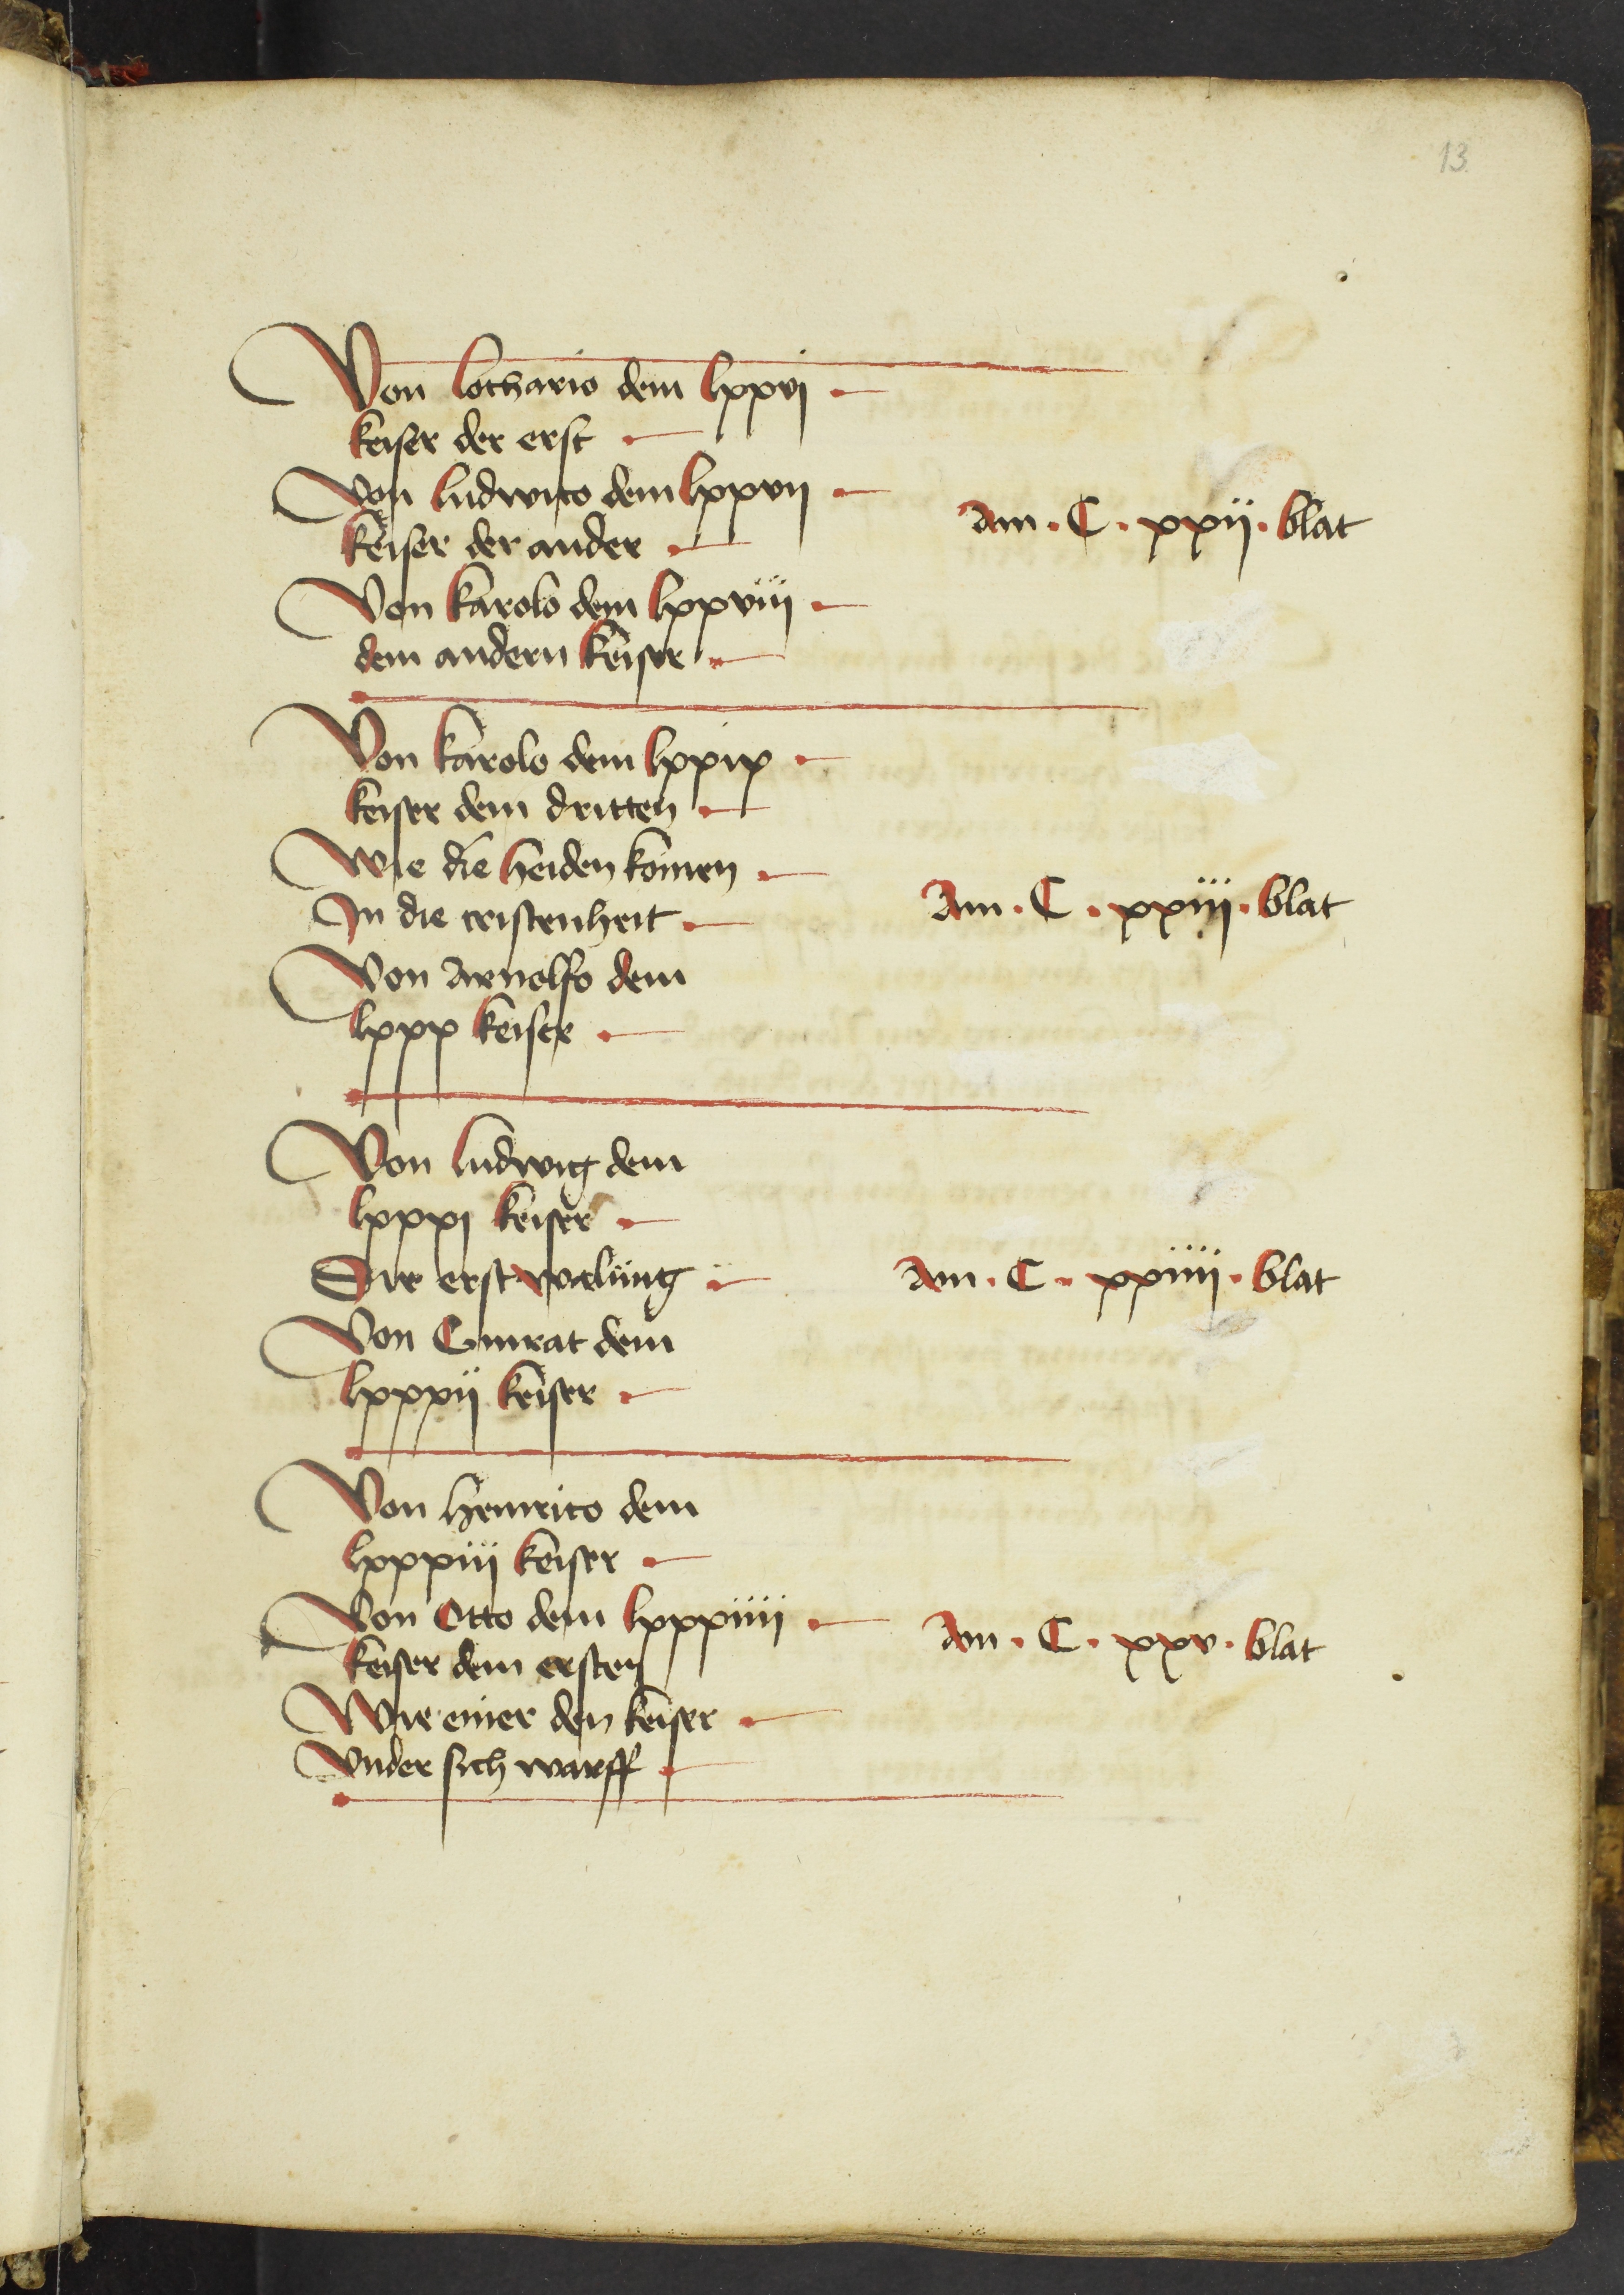 13
Von lothario dem lxxvj
keiser der erst
Von ludwico dem lxxvij
keiser der ander
Am · C · xxij · blat
Von karolo dem lxxviij
dem andern keiser
Von karolo dem lxxix
keiser dem dritten
Wie die heiden komen
In die cristenheit
Am · C · xxiij · blat
Von Arnolfo dem
lxxx keiser
Von ludwig dem
lxxxj keiser
Die erst welung
Am · C · xxiiij · blat
Von Cunrat dem
lxxxij keiser
Von heinrico dem
lxxxiij keiser
Von Otto dem lxxxiiij
keiser dem ersten
Am · C · xxv · blat
Wie einer den keiser
Vnder sich warff